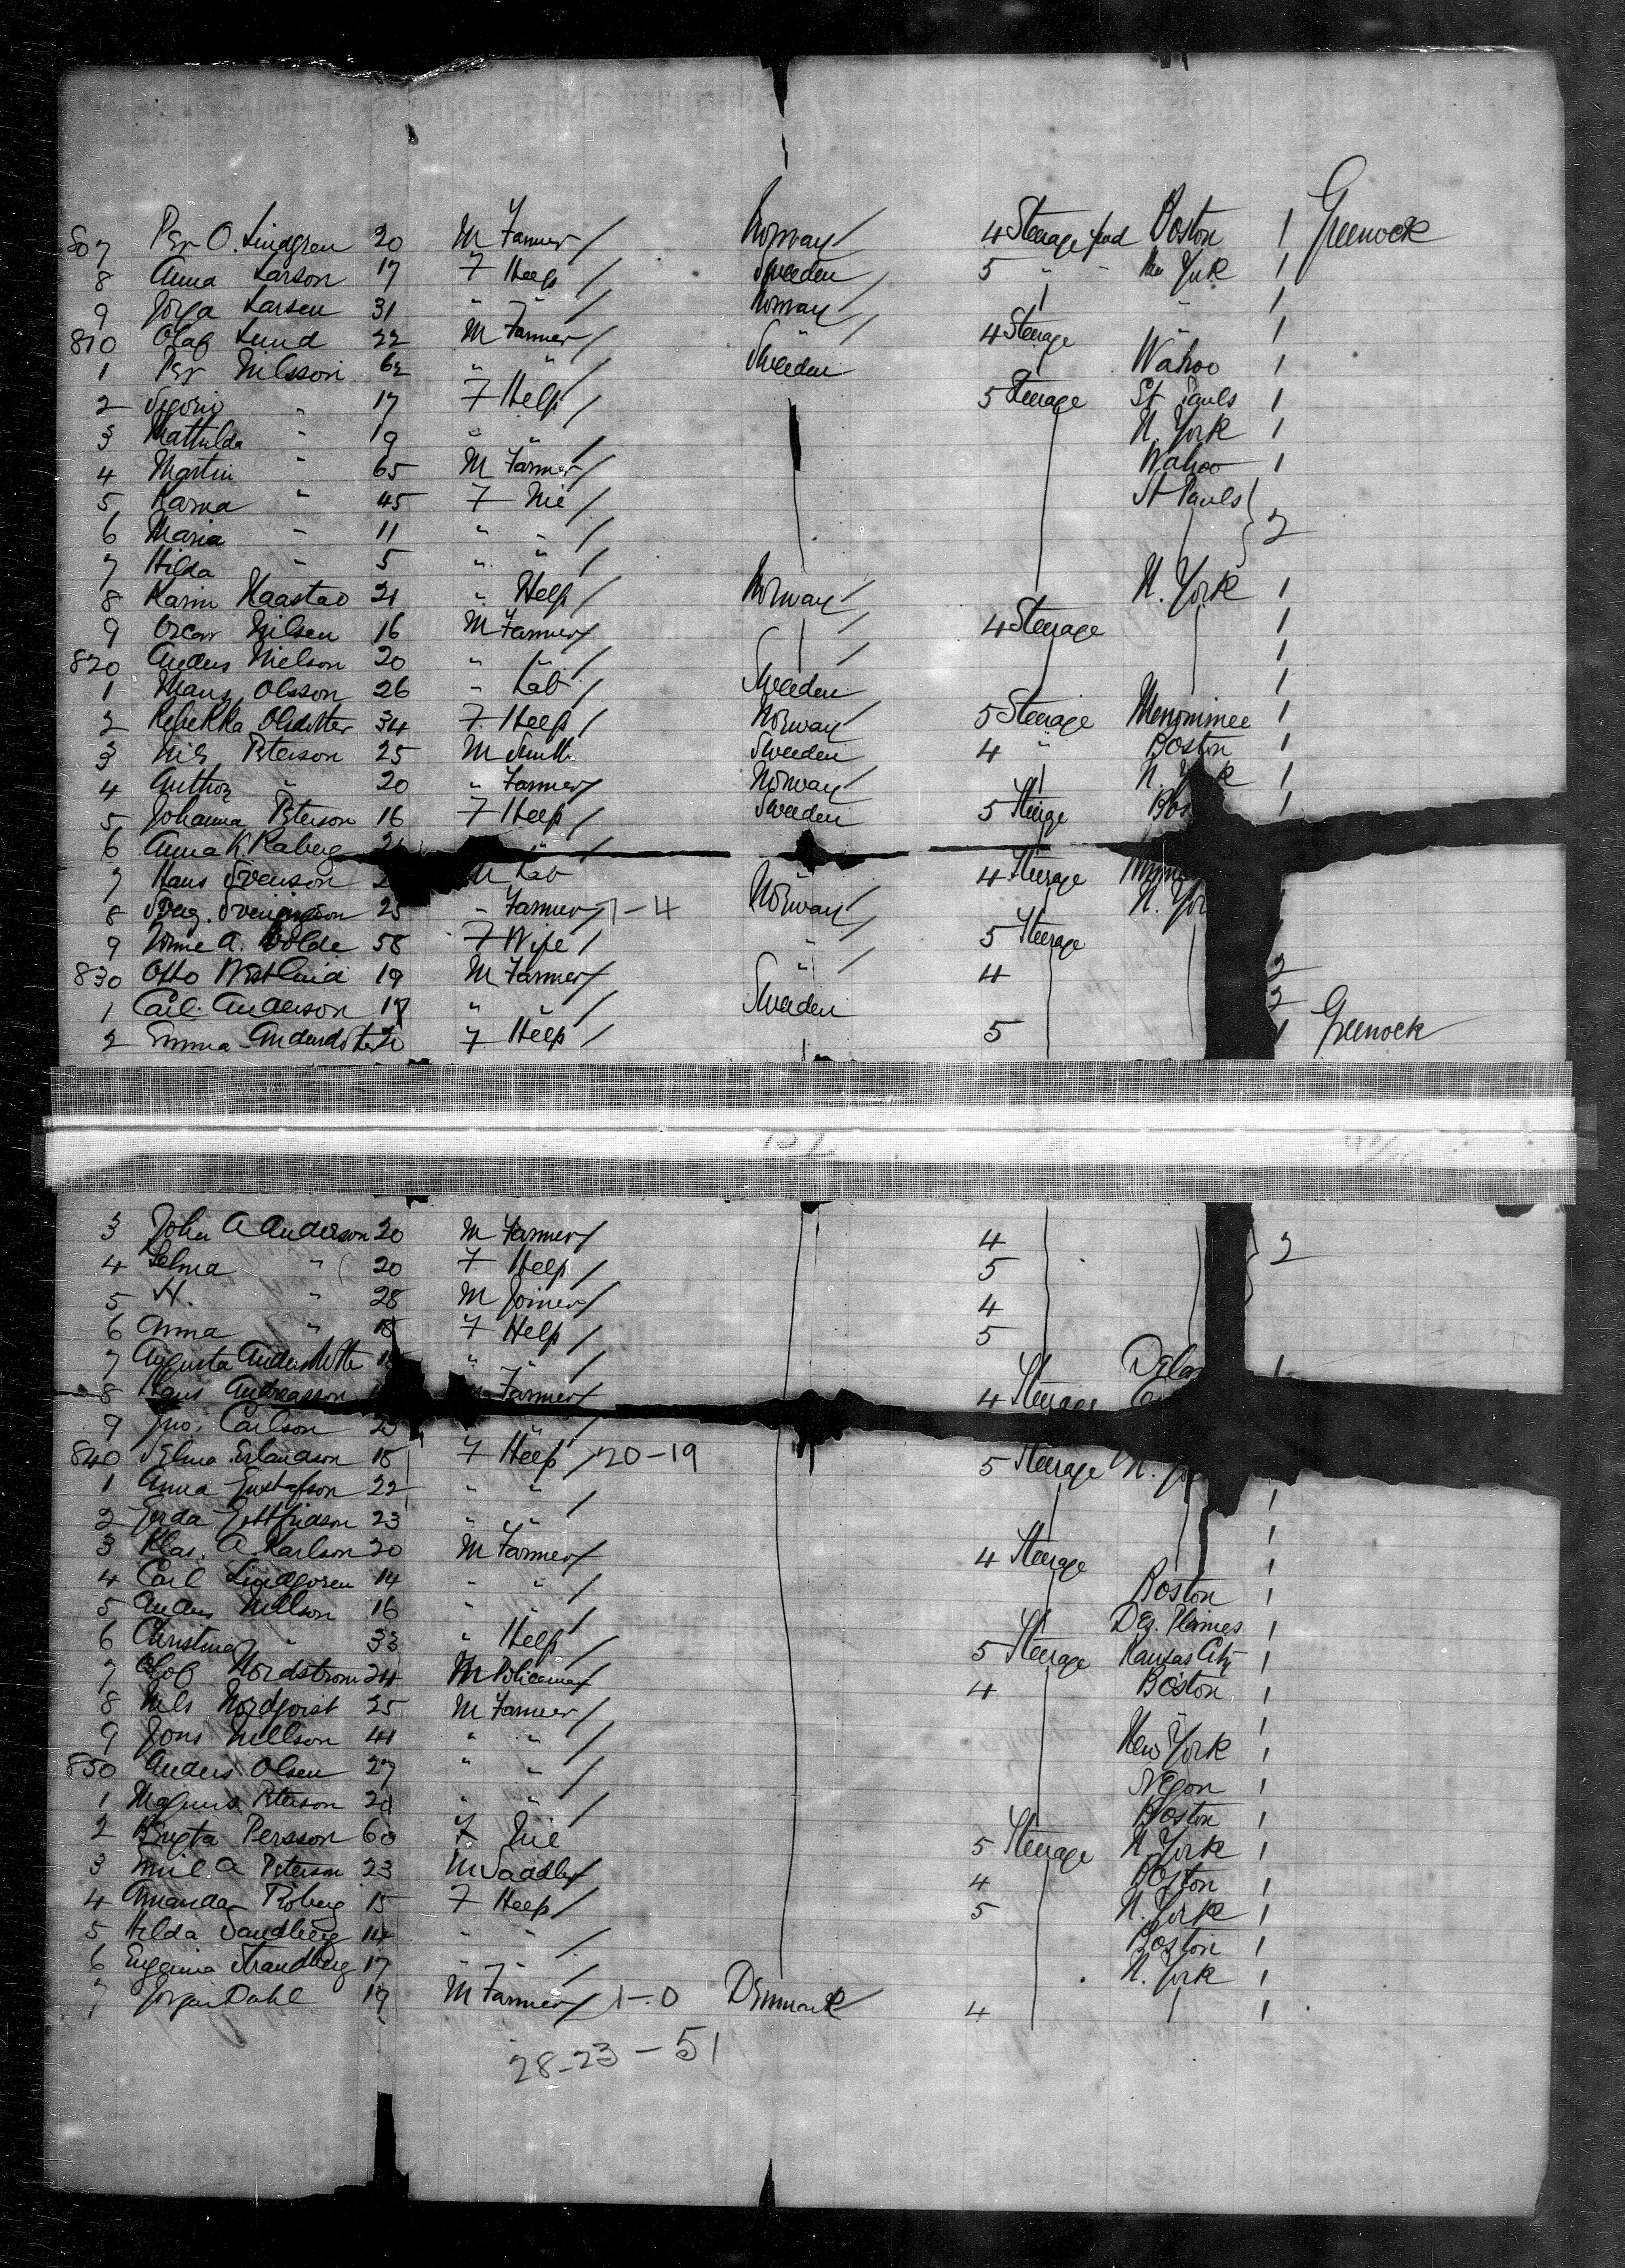 807 Per O. Lindgren 20 M Farmer / Norway / 4 Steerage fwd Boston 1 Greenock
8 Anna Larson 17 F Help / Sweden / 5 " " New York 1
9 Larsen 31 " " / Norway / " 1
810 Olaf Lund 22 M Farmer / " / 4 Steerage " 1
1 Per Nilsson 62 " " Sweden Wahoo 1
2 " 17 F Help / 5 Steerage St Pauls 1
3 Mathilda " 19 " " / N. York 1
4 Martin " 65 M Farmer / Wahoo 1
5 Karna " 45 F Nil / St Pauls
6 Maria " 11 " " / 2
7 Hilda " 5 " " /
8 Karin Haastad 21 " Help / Norway / N. York 1
9 Oscar Nilsen 16 M Farmer / / 4 Steerage 1
820 Anders Nielson 20 " " / / 1
1 Hans Olsson 26 " Lab / Sweden 1
2 Rebekka Olsdotter 34 F Help / Norway / 5 Steerage Menominee 1
3 Nils Peterson 25 M Smith Sweden 4 " Boston 1
4 " 20 " Farmer / Norway / N. York 1
5 Johanna Peterson 16 F Help / Sweden 5 Steerage Bos 1
6 Anna K Raberg " /
7 Hans Svenson M Lab 4 Steerage
8 25 " Farmer / 7-4 Norway / N. Yor
9 A. Wolde 58 F Wife / " / 5 Steerage
830 Otto Westlund 19 M Farmer / " / 4 2
1 Carl Anderson 17 " " / Sweden 2
2 Emma Andersdotter 20 F Help / 5 1 Greenock
3 John A Anderson 20 M Farmer / 4
4 Selma " 20 F Help / 5 2
5 H. " 28 M Joiner / 4
6 Anna " 18 F Help / 5
7 Augusta Andersdotter " " / 1
8 Hans Andreasson M Farmer / 4 Steerage
9 Jno. Carlson 23 " /
840 Selma Erlandson 18 F Help / 20-19 5 Steerage N. Yo
1 Anna Gustafson 22 " " / 1
2 Gerda Gottfridson 23 " " / 1
3 Klas. A. Karlson 20 M Farmer / 4 Steerage 1
4 Carl Lindgren 14 " " / Boston 1
5 Anders Nillson 16 " " / Des. Plaines 1
6 Christina " 33 " Help / 5 Steerage Kansas City 1
7 Olof Nordstrom 24 M Policeman / 4 Boston 1
8 Nels Nordqvist 25 M Farmer / " 1
9 Jons Nillson 41 " " / New York 1
850 Anders Olsen 27 " " / 1
1 Magnus Peterson 20 " " / Boston 1
2 Persson 60 F Nil 5 Steerage N. York 1
3 Emil A Peterson 23 M Saddler / 4 Boston 1
4 Amanda 15 F Help / 5 N. York 1
5 Hilda Sandberg 14 " " / Boston 1
6 Eugenia Strandberg 17 " " / N. York 1
7 Jorgen Dahl 19 M Farmer / 1-0 Denmark / 4 1
28-23-51